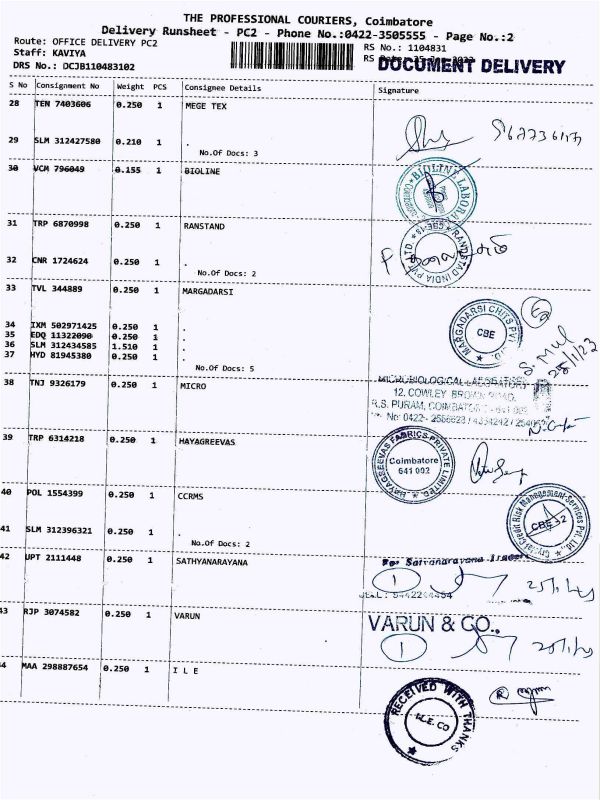 THE PROFESSIONAL COURIERS, Coimbatore
Delivery Runsheet - PC2 - Phone No.:0422-3505555 - Page No.:2
Route: OFFICE DELIVERY PC2
RS No.: 1104831
Staff: KAVIYA
RS
DOCUMENT DELIVERY
DRS No.: DCJB110483102
S No Consignment No Weight PCS Consignee Details Signature
28 TEN 7403606 0.250 1 MEGE TEX
29 SLM 312427580 0.210 1 .
No.Of Docs: 3
30 VCM 796049 0.155 1 BIOLINE
BIOLINE LABORATORY
31 TRP 6870998 0.250 1 RANSTAND
RANDSTAD INDIA PVT LTD. CBE-18
32 CNR 1724624 0.250 1 .
No.Of Docs: 2
33 TVL 344889 0.250 1 MARGADARSI
MARGADARSI CHITS PVT. LTD.
CBE
34 IXM 502971425 0.250 1 .
35 EDQ 11322090 0.250 1 .
36 SLM 312434585 1.510 1 .
37 HYD 81945380 0.250 1 .
No.Of Docs: 5
25/1/23
38 TNJ 9326179 0.250 1 MICRO
MICROBIOLOGICAL LABORATORY
12, COWLEY BROWN ROAD,
R.S. PURAM, COIMBATORE - 641 002
No: 0422-
39 TRP 6314218 0.250 1 HAYAGREEVAS
HAYAGREEVAS FABRICS PRIVATE LIMITED
Coimbatore
641 002
40 POL 1554399 0.250 1 CCRMS
Crystal Credit Risk Management Services Pvt. Ltd.,
CBE
41 SLM 312396321 0.250 1 .
No.Of Docs: 2
42 UPT 2111448 0.250 1 SATHYANARAYANA
For Satyanarayana Traders
1
43 RJP 3074582 0.250 1 VARUN
VARUN & CO.,
1
44 MAA 298887654 0.250 1 I L E
RECEIVED WITH THANKS
I.L.E. CO